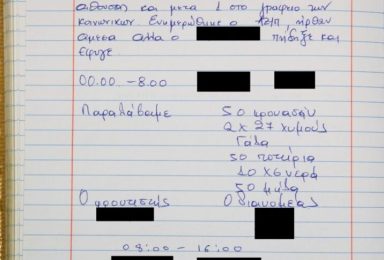 αίθουσα και μετά στο γραφείο των
κοινωνικών. Ενημερώθηκε ο ήρθαν
άμεσα αλλά ο πήδηξε και
έφυγε.
00.00 - 8.00
Παραλάβαμε 50 κρουασάν
2 x 27 χυμούς
Γάλα
50 ποτήρια
10 x 6 νερά
50 μήλα
Ο φροντιστής Ο διανομέας
08:00 - 16:00